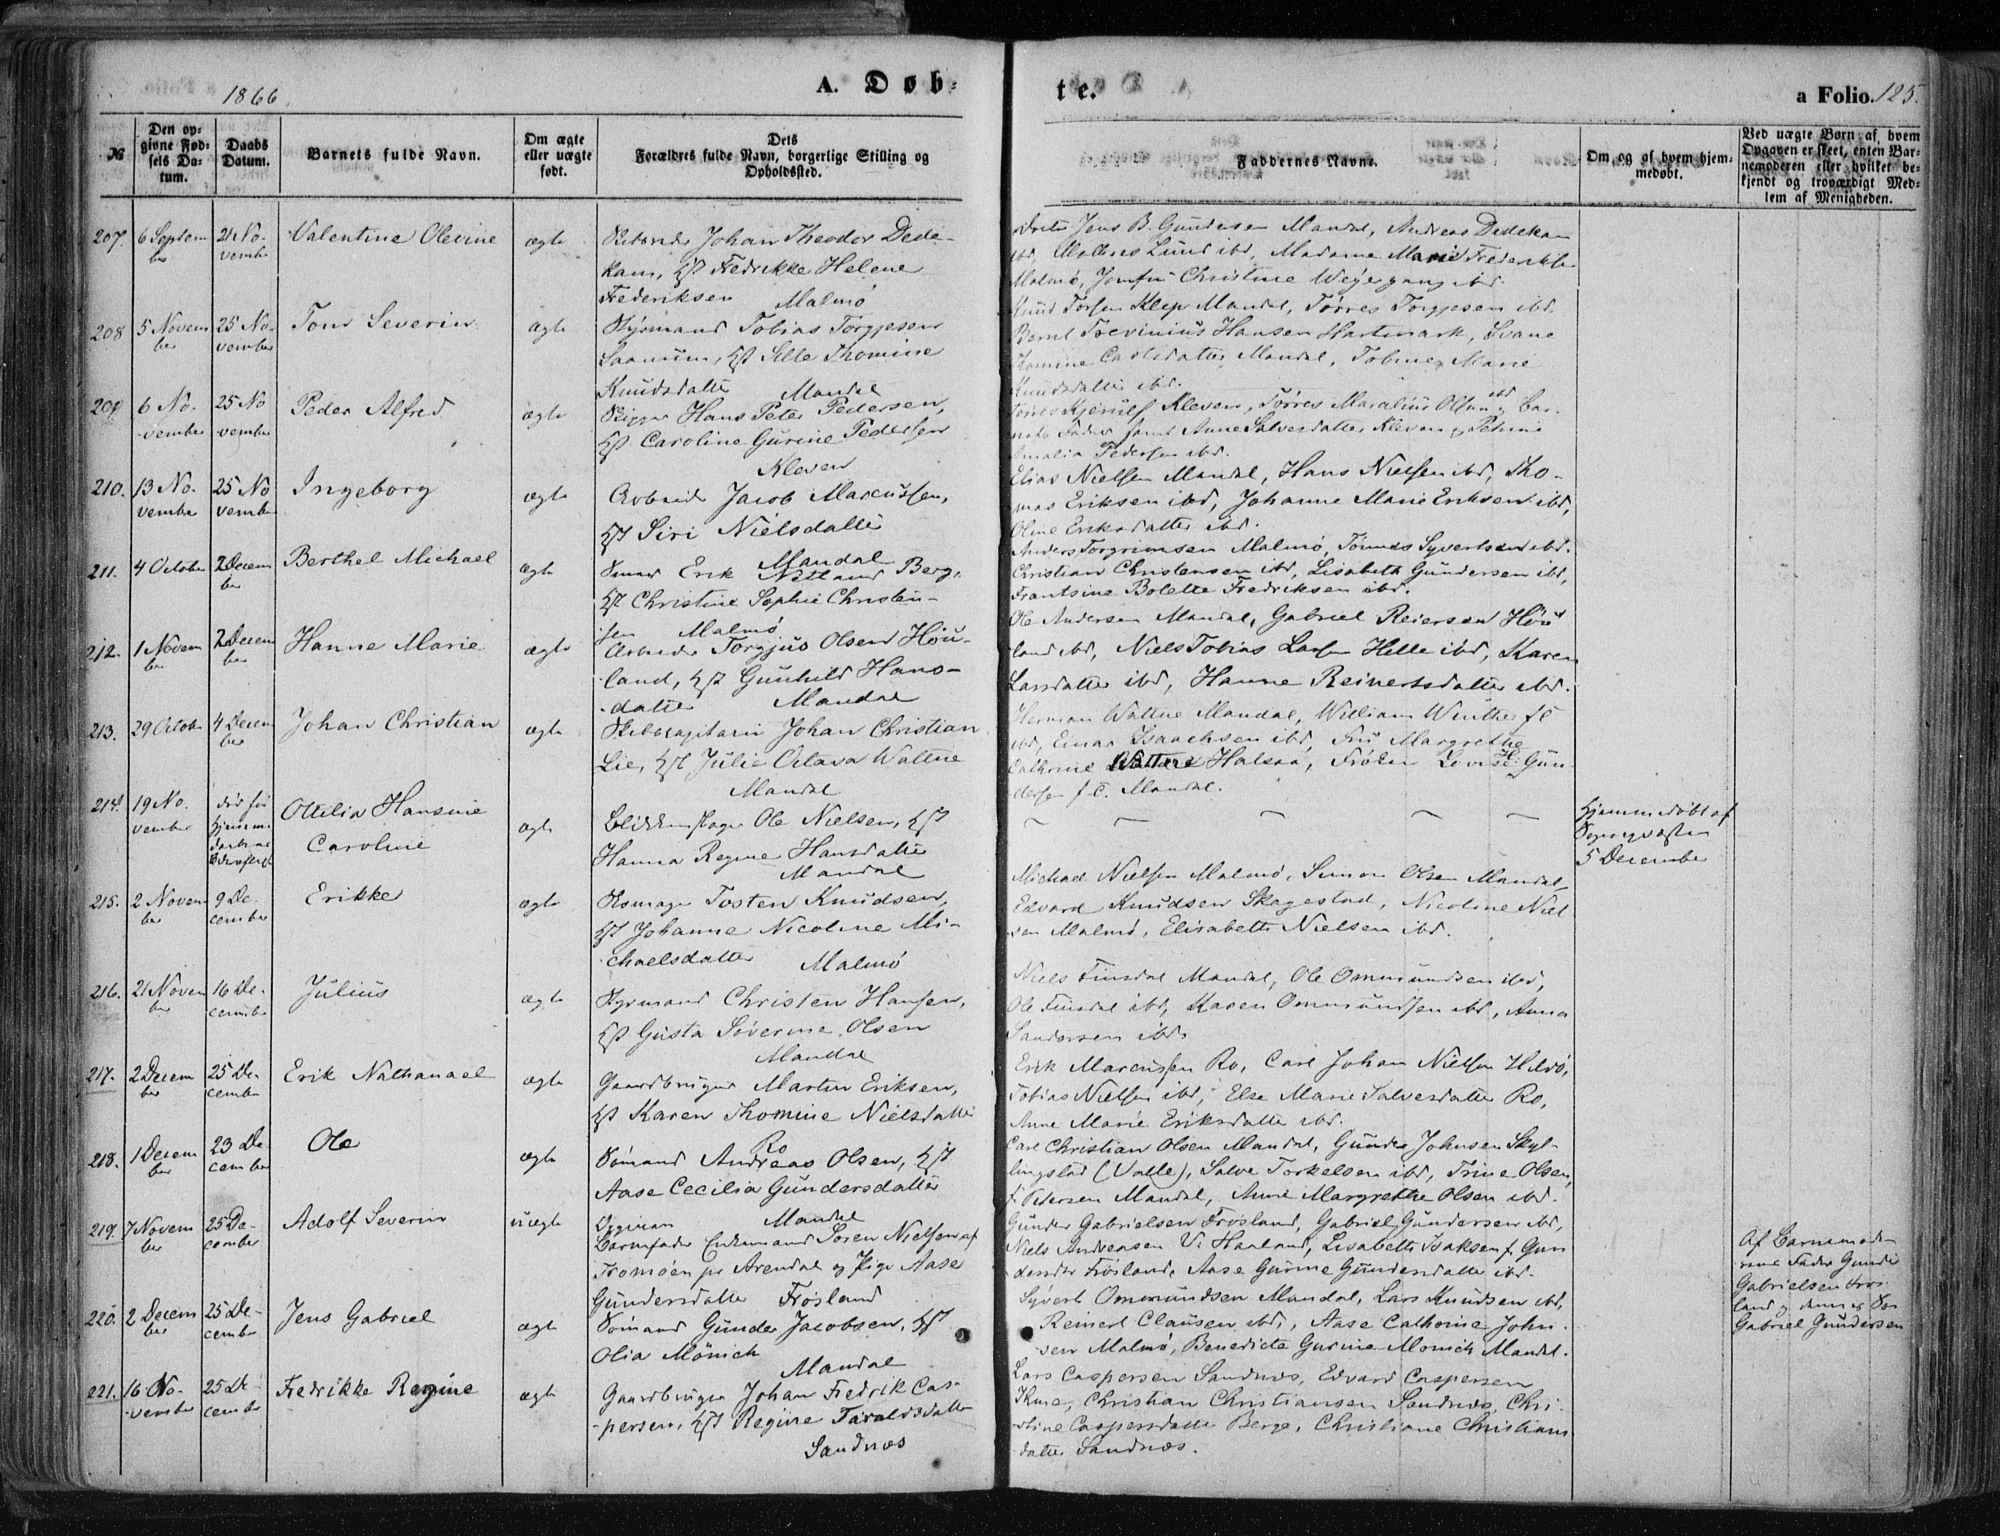 1866
A. Døb-
te.
a Folio. 125.
№
Den op-
givne Fød-
sels Da-
tum.
Daabs
Datum.
Barnets fulde Navn.
Om ægte
eller uægte
født.
Dets
Forældres fulde Navn, borgerlige Stilling og
Opholdssted.
Faddernes Navne.
Om og af hvem hjem-
medøbt.
Ved uægte Børn af hvem
Opgaven er skeet, enten Bar-
nemoderen eller hvilket be-
kjendt og troværdigt Med-
lem af Menigheden.
207. 6 Septem
ber
21 No-
vember
Valentine Olevine
ægte
Johan Theodor Dede-
kam, Fredrikke Helene
Frederiksen Malmø
Jens B. Gundersen Mandal, Andreas Dedekam
ibd, Lund ibd, Madame Marie Frederiksen
Malmø, Jomfru Christine Weyergang ibd.
208 5 Novem
ber
25 No-
vember
Tom Severin
ægte
Tobias Torgjesen
Saanum, Thomine
Knudsdatter Mandal
Knud Torsen Klep Mandal, Tørres Torgjesen ibd,
Bernt Hansen Hartmark,
Carlsdatter Mandal, Tobine Marie
Knudsdatter ibd.
209 6 No-
vember
25 No
vember
Peder Alfred
ægte
Hans Peter Pedersen,
Caroline Gurine Pedersen
Kleven
Tørres Kjerulf Kleven, Tørres Olsen ibd og Bar-
nets Fader samt Anne Salvesdatter Kleven og Petrine
Amalia Pedersen ibd.
210. 13 No-
vember
25 No
vember
Ingeborg
ægte
Arbeider Jacob Marcussen,
Siri Nielsdatter
Mandal
Elias Nielsen Mandal, Hans Nielsen ibd, Tho-
mas Eriksen ibd, Johanne Marie Eriksen ibd,
Oline Eriksdatter ibd.
211. 4 October
2 Decem
ber
Berthel Michael
ægte
Erik Natland Berg,
Christine Sophie Christen-
sen Malmø
Anders Torgrimsen Malmø, Tønnes Syvertsen ibd.
Christian Christensen ibd, Lisabeth Gundersen ibd,
Frantsine Bolette Fredriksen ibd.
212. 1 Novem
ber
2 Decem
ber
Hanne Marie
ægte
Arbeider Torgjus Olsen Høu-
land, Gunhild Hans-
datter Mandal
Ole Andersen Mandal, Gabriel Reiersen Høu
land ibd, Niels Tobias Larsen Helle ibd, Karen
Larsdatter ibd, Hanne Reinertsdatter ibd.
213. 29 October
4 Decem
ber
Johan Christian
ægte
Skibscapitain Johan Christian
Lie, Julie Octava Wattne
Mandal
Herman Wattne Mandal, William Winther f C
ibd, Einar Isaachsen ibd, Fru Margrethe
Cathrine Halsaa, Frøken Lovise H. Gun-
dersen f C. Mandal.
214. 19 No-
vember
død før
Ottilia Hansine
Caroline
ægte
Blikkenslager Ole Nielsen,
Hanna Regine Hansdatter
Mandal
Hjemmedøbt af
Sognepræsten
5 December
215. 2 Novem
ber
9 De-
cember
Erikke
ægte
Tosten Knudsen,
Johanne Nicoline Mi-
chaelsdatter Malmø
Michael Nielsen Malmø, Simon Olsen Mandal,
Edvard Knudsen Skagestad, Nicoline Niel
sen Malmø, Elisabeth Nielsen ibd.
216. 21 Novem
ber
16 De-
cember
Julius
ægte
Styrmand Christen Hansen,
Gusta Severine Olsen
Mandal
Niels Finsdal Mandal, Ole Ommundsen ibd,
Ole Finsdal ibd, Karen Ommundsen ibd, Anna
Sandersen ibd.
217. 2 Decem
ber
25 De-
cember
Erik Nathanael
ægte
Gaardbruger Martin Eriksen,
Karen Thomine Nielsdatter
Ro
Erik Marcussen Ro, Carl Johan Nielsen Hildø,
Tobias Nielsen ibd, Else Marie Salvesdatter Ro,
Anne Marie Eriksdatter ibd.
218. 1 Decem
ber
23 De
cember
Ole
ægte
Sømand Andreas Olsen,
Aase Cecilia Gundersdatter
Mandal
Carl Christian Olsen Mandal, Gunder Johnsen Skyl-
lingstad (Valle), Salve Torkelsen ibd, Trine Olsen,
f. Petersen Mandal, Anne Margrethe Olsen ibd.
219. 7 Novem
ber
25 De-
cember
Adolf Severin
uægte
Barnefader Enkemand Søren Nielsen af
Tromøen pr Arendal og Pige Aase
Gundersdatter Frøsland
Gunder Gabrielsen Frøsland, Gabriel Gundersen ibd,
Niels Andreasen V. Haaland, Lisabeth Isaksen f. Gun
dersdtr Frøsland, Aase Gurine Gundersdatter ibd.
Af Barnemode-
rens Fader Gunder
Gabrielsen Frøs-
land og dennes Søn
Gabriel Gundersen
220. 2 Decem
ber
25 De-
cember
Jens Gabriel
ægte
Sømand Gunder Jacobsen,
Olia Mönich
Mandal
Syvert Ommundsen Mandal, Lars Knudsen ibd,
Reinert Clausen ibd, Aase Cathrine John-
sen Malmø, Benedicte Gurine Mönich Mandal.
221. 16 No-
vember
25 De-
cember
Fredrikke Regine
ægte
Gaardbruger Johan Fredrik Cas-
persen, Regine Taraldsdatter
Sandnæs
Lars Caspersen Sandnæs, Edvard Caspersen
Ime, Christian Christiansen Sandnæs, Chri-
stine Caspersdatter Berge, Christiane Christians
datter Sandnæs.